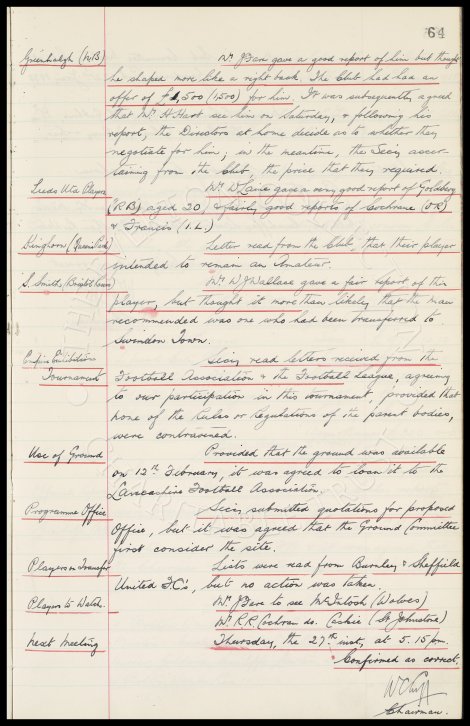 64
Greenhalgh (N.B) Mr. J Bare gave a good report of him but thought
he shaped more like a right back. The Club had had an
offer of £1,500 (1,500) for him. It was subsequently agreed
that Mr. H Hart see him on Saturday, & following his
report, the Directors at home decide as to whether they
negotiate for him; in the meantime, the Secy ascer-
taining from the Club, the price that they required.
Leeds Utd Players Mr W Laine gave a very good report of Goldberg
(R B) aged 20) & fairly good reports of Cochrane (O R)
& Francis (I.L.)
Kinghorn (Queens Park) Letter read from the Club, that their player
intended to remain an Amateur.
S. Smith (Bristol Rovers) Mr W J Wallace gave a fair report of this
player, but thought it more than likely that the man
recommended was one who had been transferred to
Swindon Town.
Empire Exhibition Secy read letters received from the
Tournament Football Association & the Football League, agreeing
to our participation in this tournament, provided that
none of the Rules or Regulations of the parent bodies,
were contravened.
Use of Ground Provided that the ground was available
on 12th February, it was agreed to loan it to the
Lancashire Football Association.
Programme Office Secy submitted quotations for proposed
Office, but it was agreed that the Ground Committee
first consider the site.
Players on Transfer Lists were read from Burnley & Sheffield
United F.C's, but no action was taken
Players to Watch. Mr. J Bare to see McIntosh (Wolves)
Mr. R.R. Cochran do. Caskie (St Johnstone)
Next Meeting Thursday, the 27th inst, at 5.15 pm.
Confirmed as correct.
W C Cuff
Chairman.